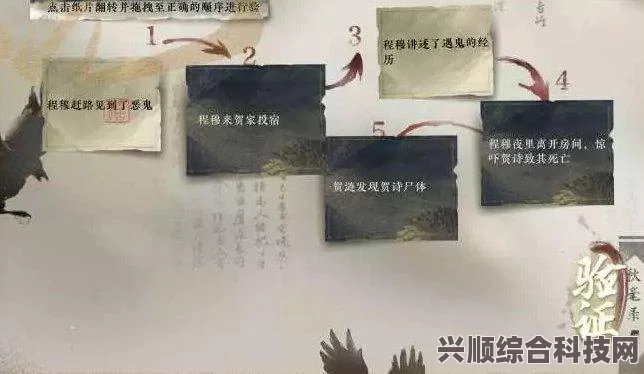 点击纸片翻转并拖拽至正确的顺序进行验
1
2
3
4
5
程穆赶路见到了恶鬼
程穆来贺家投宿
程穆讲述了遇鬼的经
历
程穆夜里离开房间，惊
吓贺诗致其死亡
贺涟发现贺诗尸体
验证
兴顺综合科技网